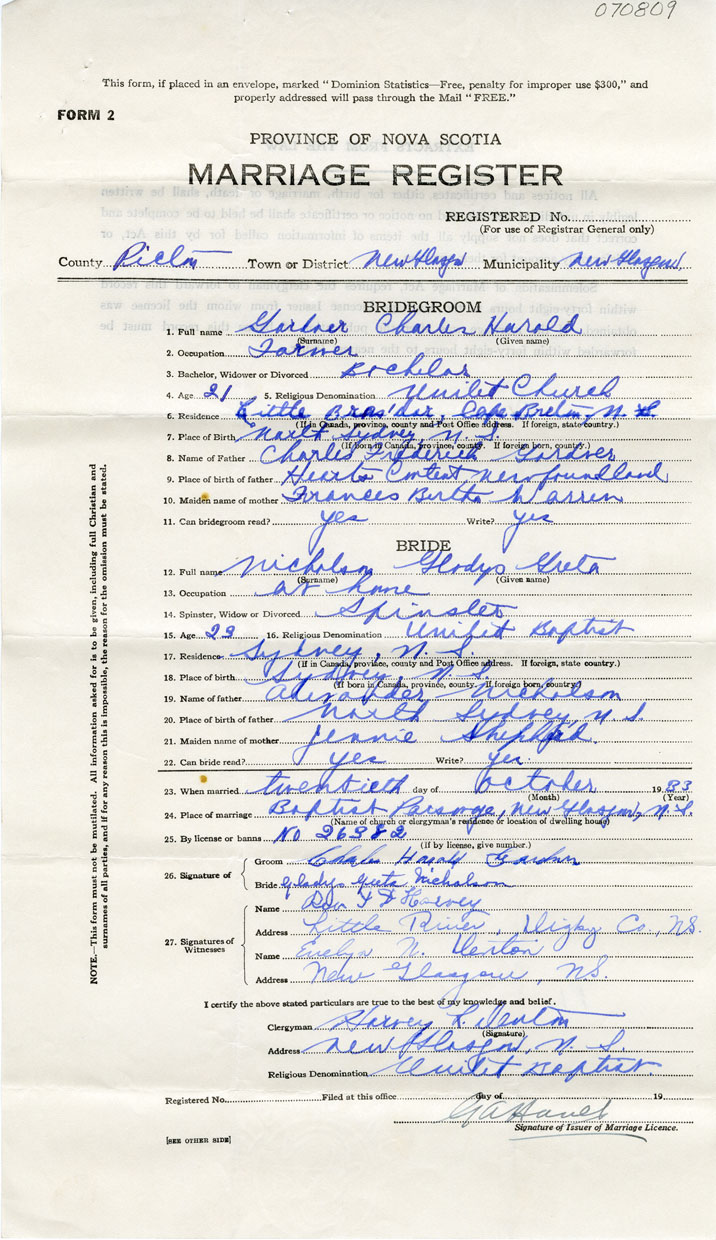 070809
This form, if placed in an envelope, marked "Dominion Statistics—Free, penalty for improper use $300," and
properly addressed will pass through the Mail "FREE."
FORM 2
PROVINCE OF NOVA SCOTIA
MARRIAGE REGISTER
REGISTERED No.
(For use of Registrar General only)
County Pictou Town or District New Glasgow Municipality New Glasgow
BRIDEGROOM
1. Full name Gardner Charles Harold
(Surname) (Given name)
2. Occupation Farmer
3. Bachelor, Widower or Divorced Bachelor
4. Age 21 5. Religious Denomination United Church
6. Residence Little Bras'dor, Cape Breton, N. S.
(If in Canada, province, county and Post Office address. If foreign, state country.)
7. Place of Birth North Sydney, N. S.
(If born in Canada, province, county. If foreign born, country.)
8. Name of Father Charles Frederick Gardner
9. Place of birth of father Hearts Content Newfoundland
10. Maiden name of mother Frances Bertha Warren
11. Can bridegroom read? yes Write? yes
BRIDE
12. Full name Nicholson Gladys Greta
(Surname) (Given name)
13. Occupation at home
14. Spinster, Widow or Divorced Spinster
15. Age 23 16. Religious Denomination United Baptist
17. Residence Sydney, N. S.
(If in Canada, province, county and Post Office address. If foreign, state country.)
18. Place of birth Sydney, N. S.
(If born in Canada, province, county, If foreign born, country)
19. Name of father Alexander Nicholson
20. Place of birth of father North Sydney, N. S.
21. Maiden name of mother Jennie Shepherd
22. Can bride read? yes Write? yes
23. When married twentieth day of October 1933
(Month) (Year)
24. Place of marriage Baptist Parsonage, New Glasgow, N. S.
(Name of church or clergyman's residence or location of dwelling house)
25. By license or banns No 26382
(If by license, give number.)
26. Signature of
Groom Charles Harold Gardner
Bride Gladys Greta Nicholson
27. Signatures of Witnesses
Name Harvey
Address Little River, Digby Co., N.S.
Name Evelyn N. Denton
Address New Glasgow, N.S.
I certify the above stated particulars are true to the best of my knowledge and belief.
Clergyman Harvey L. Denton
(Signature)
Address New Glasgow, N. S.
Religious Denomination United Baptist
Registered No. Filed at this office day of 19
Signature of Issuer of Marriage Licence.
[SEE OTHER SIDE]
NOTE.—This form must not be mutilated. All information asked for is to be given, including full Christian and
surnames of all parties, and if for any reason this is impossible, the reason for the omission must be stated.